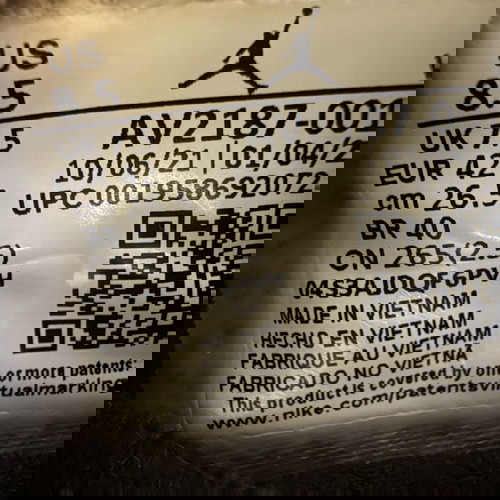 US
8.5
AV2187-001
UK 7.5
10/06/21 01/04/2
EUR 42
UPC 001958692072
cm 26.5
BR 40
CN 265(2.5)
MADE IN VIETNAM
HECHO EN VIETNAM
FABRIQUE AU VIETNAM
FABRICADO NO VIETNA
This product is covered by one or more patents:
www.nike.com/patentsvirtualmarking